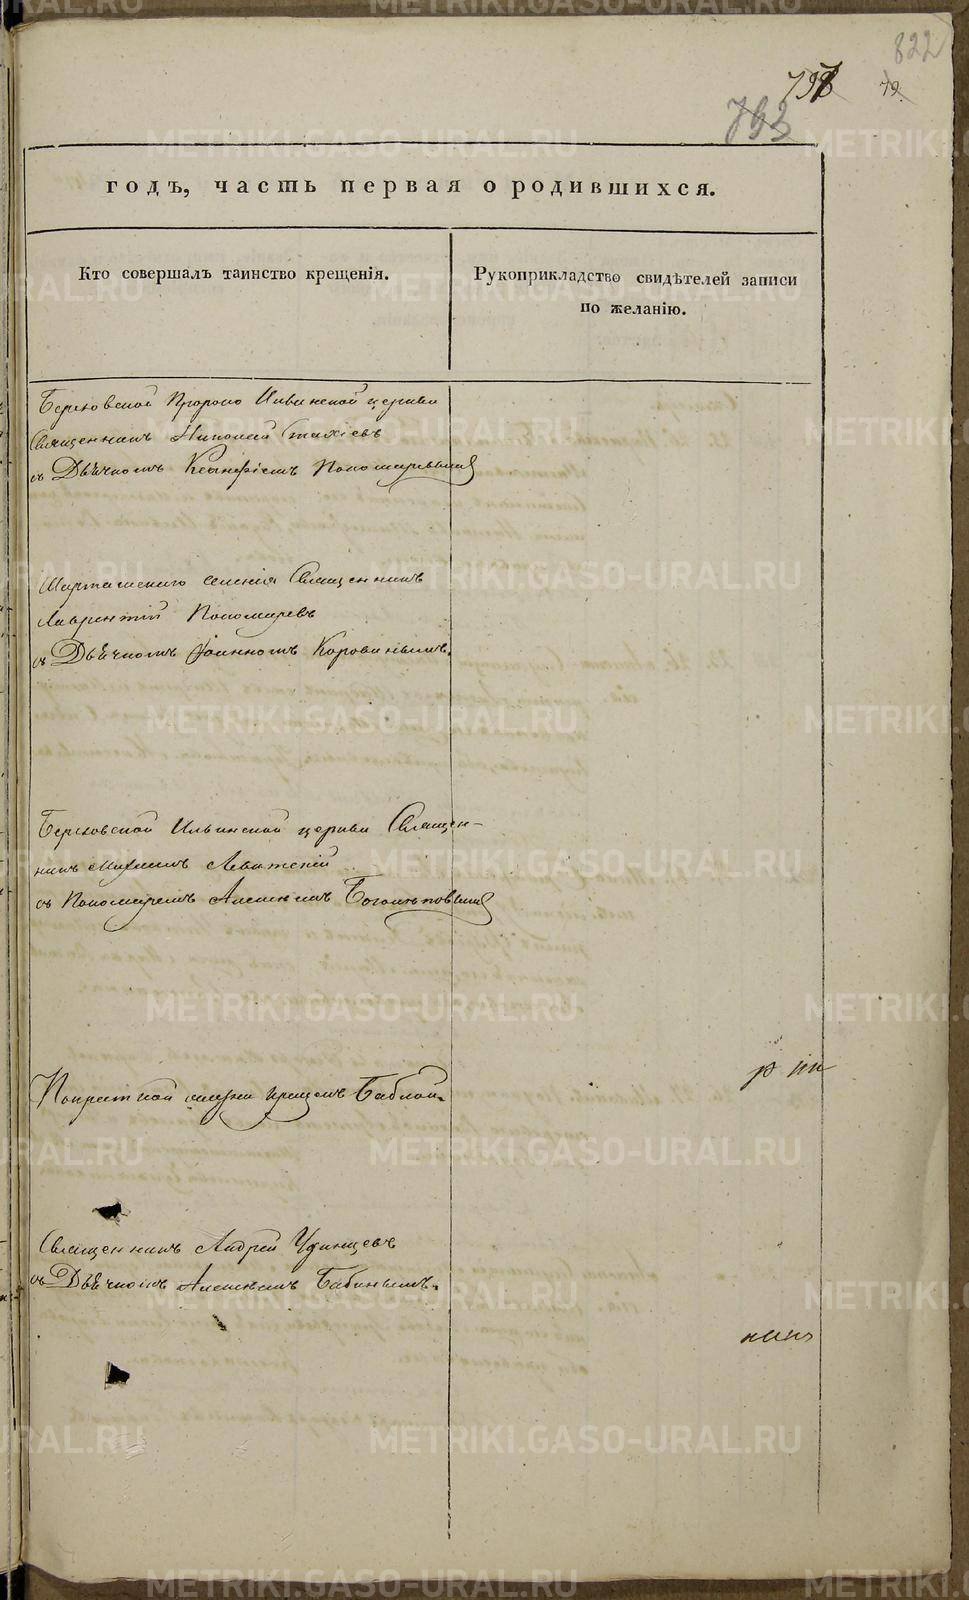 822
797
79.
793
годъ, часть первая о родившихся.
Кто совершалъ таинство крещенія.
Рукоприкладство свидѣтелей записи
по желанію.
Березовской Пророко Ильинской церкви
Священникъ Николай Стахіевъ
съ Дьячкомъ Ксенофонтомъ Пономаревымъ
Шарташскаго селенія Священникъ
Лаврентій Пономаревъ
съ Дьячкомъ Іоанномъ Коровинымъ.
Березовской Ильинской церкви Священ-
никъ Михаилъ Левитскій
съ Пономаремъ Алексѣемъ Боголѣповымъ
крещенъ Бабкой.
Священникъ Андрей Удинцевъ
съ Дьячкомъ Алексѣемъ Бабинымъ.
METRIKI.GASO-URAL.RU